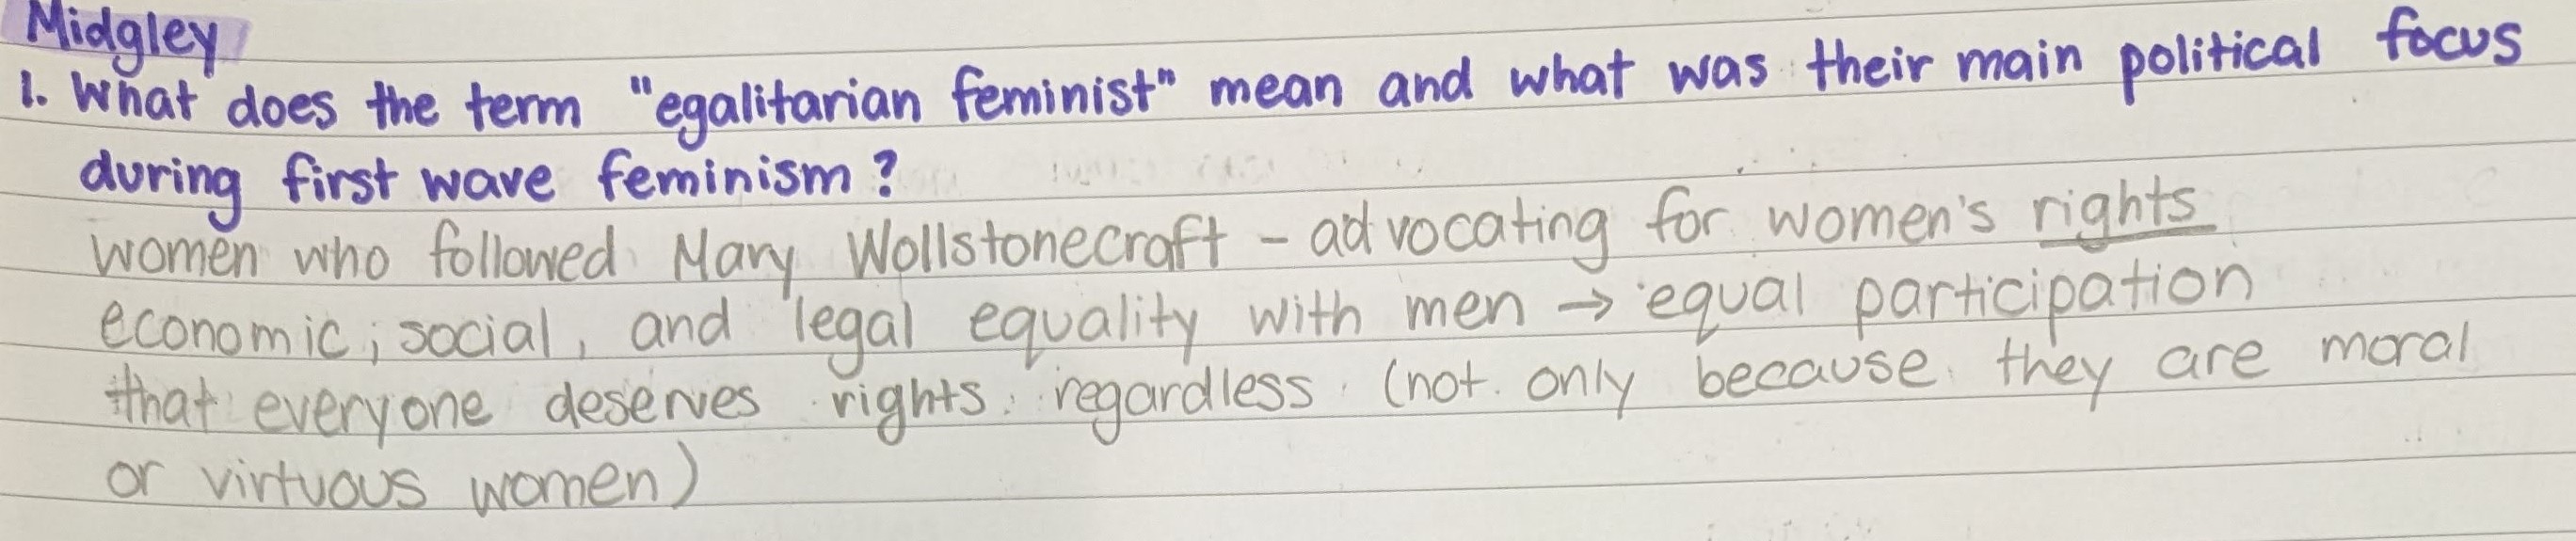 Midgley
1. What does the term "egalitarian feminist" mean and what was their main political focus
during first wave feminism?
women who followed Mary Wollstonecraft - advocating for women's rights
economic, social, and legal equality with men → equal participation
that everyone deserves rights regardless (not only because they are moral
or virtuous women)